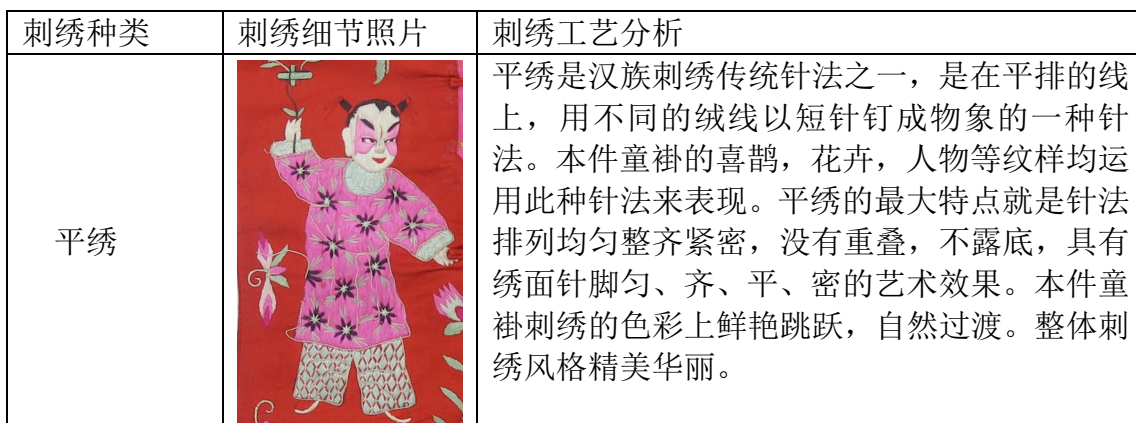 刺绣种类
刺绣细节照片
刺绣工艺分析
平绣
平绣是汉族刺绣传统针法之一，是在平排的线
上，用不同的绒线以短针钉成物象的一种针
法。本件童褂的喜鹊，花卉，人物等纹样均运
用此种针法来表现。平绣的最大特点就是针法
排列均匀整齐紧密，没有重叠，不露底，具有
绣面针脚匀、齐、平、密的艺术效果。本件童
褂刺绣的色彩上鲜艳跳跃，自然过渡。整体刺
绣风格精美华丽。